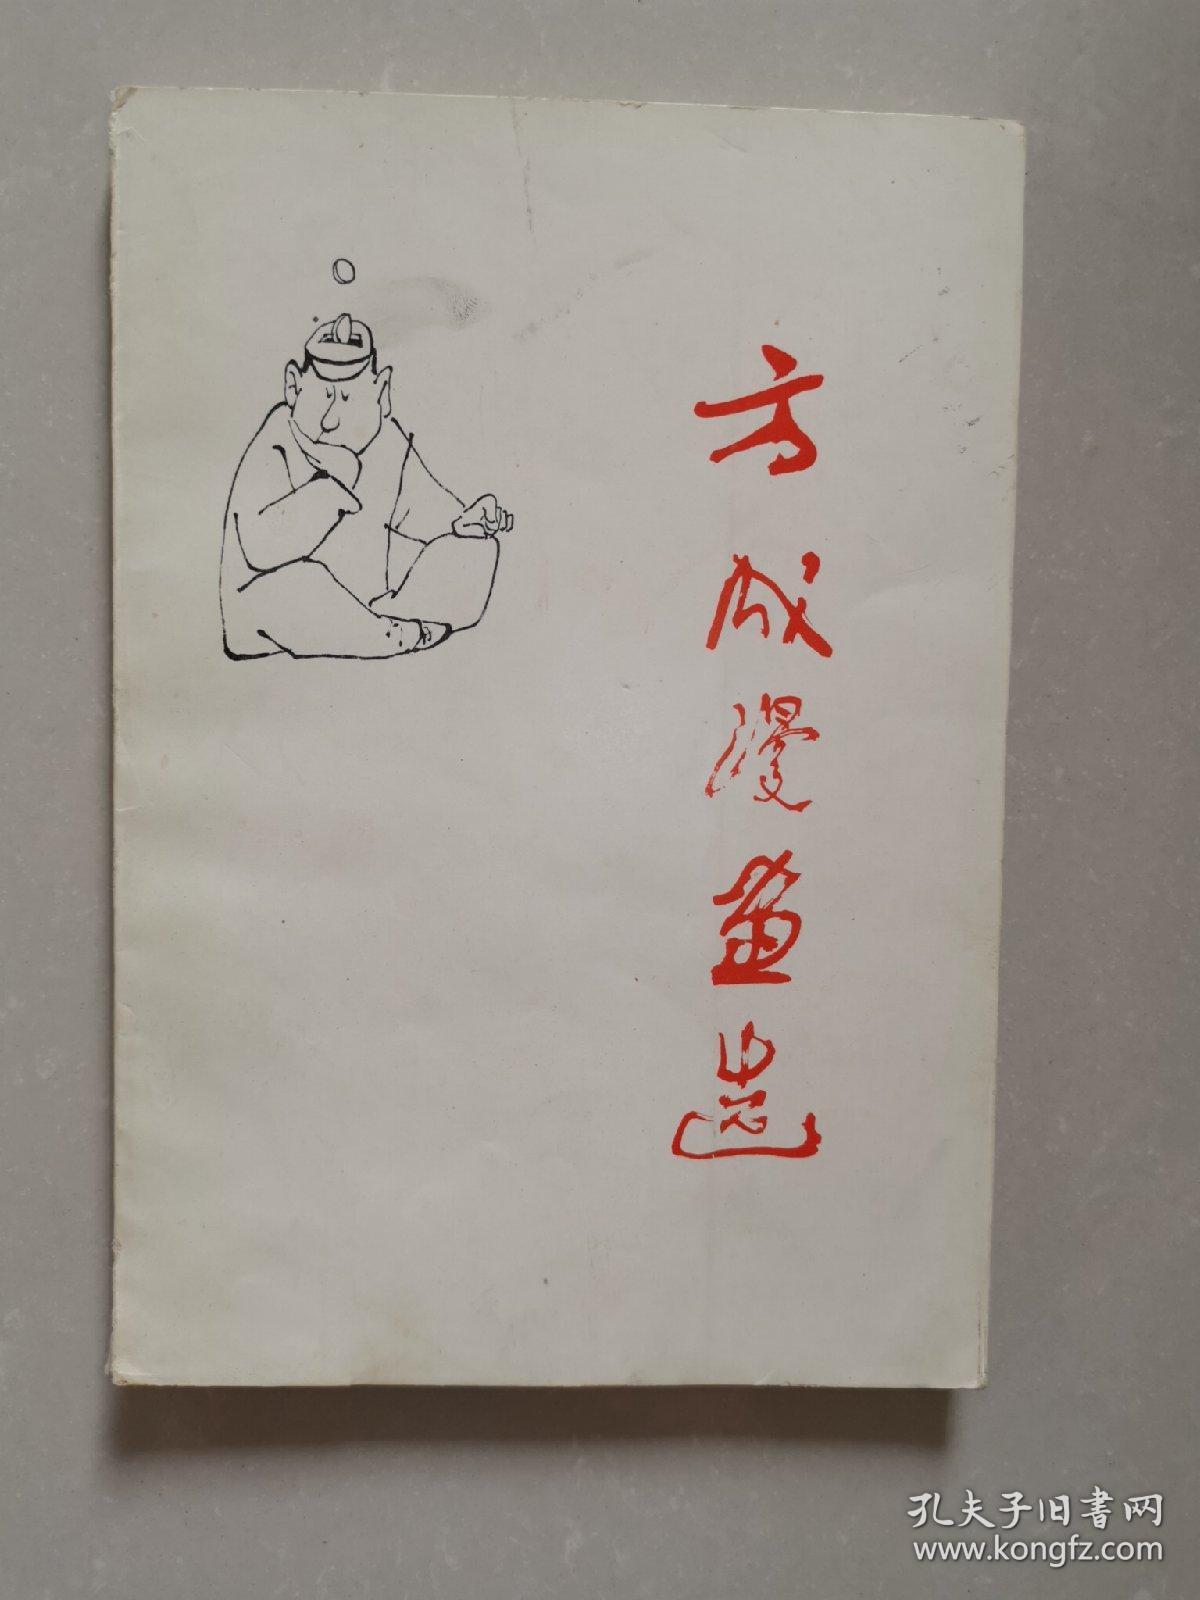 方成漫画选
孔夫子旧书网
www.kongfz.com